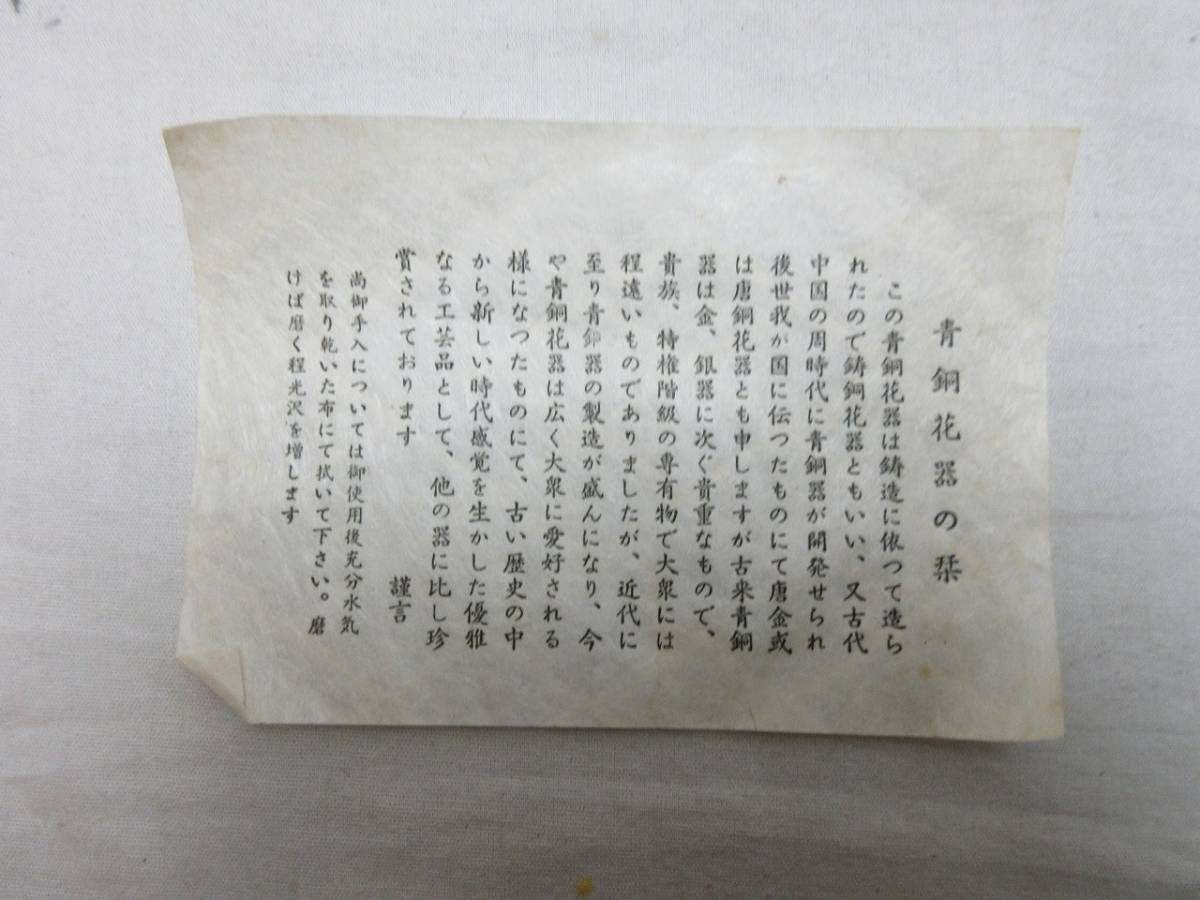 青銅花器の栞
この青銅花器は鋳造に依つて造ら
れたので鋳銅花器ともいい、又古代
中国の周時代に青銅器が開発せられ
後世我が国に伝つたものにて唐金或
は唐銅花器とも申しますが古来青銅
器は金、銀器に次ぐ貴重なもので、
貴族、特権階級の専有物で大衆には
程遠いものでありましたが、近代に
至り青銅器の製造が盛んになり、今
や青銅花器は広く大衆に愛好される
様になつたものにて、古い歴史の中
から新しい時代感覚を生かした優雅
なる工芸品として、他の器に比し珍
賞されております
謹言
尚御手入については御使用後充分水気
を取り乾いた布にて拭いて下さい。磨
けば磨く程光沢を増します